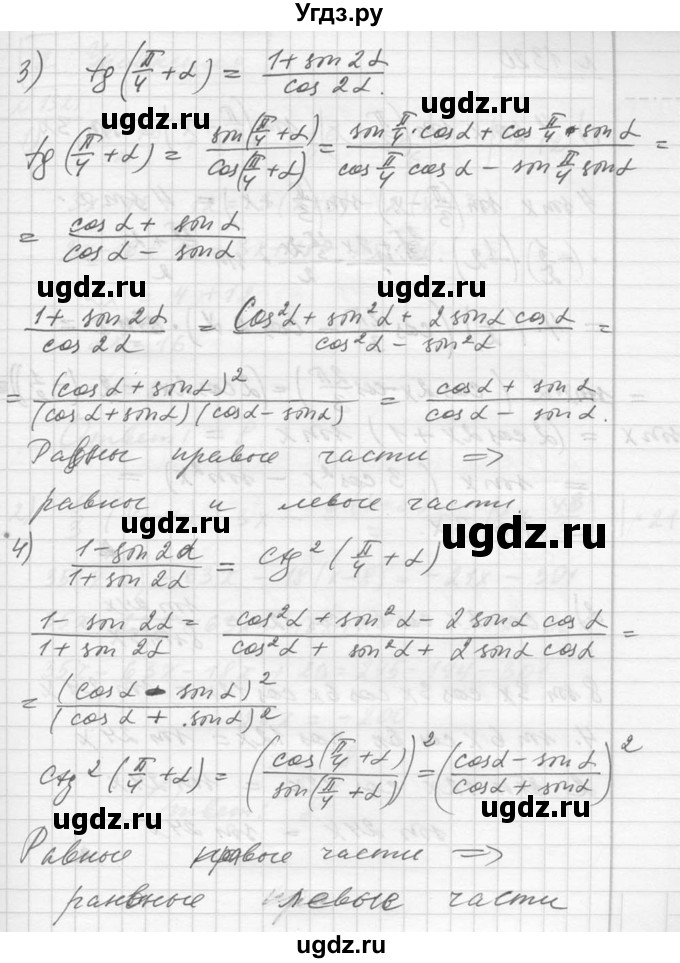 Угдз.ру
3) tg(π/4 + α) = (1 + sin 2α)/(cos 2α).
ugdz.ru
ugdz.ru
tg(π/4 + α) = sin(π/4 + α)/cos(π/4 + α) = (sin π/4 · cos α + cos π/4 · sin α)/(cos π/4 cos α − sin π/4 sin α) =
= (cos α + sin α)/(cos α − sin α)
ugdz.ru
ugdz.ru
(1 + sin 2α)/(cos 2α) = (cos²α + sin²α + 2 sin α cos α)/(cos²α − sin²α) =
= (cos α + sin α)²/((cos α + sin α)(cos α − sin α)) = (cos α + sin α)/(cos α − sin α).
Равны правые части ⇒
равны и левые части.
ugdz.ru
ugdz.ru
4) (1 − sin 2α)/(1 + sin 2α) = ctg²(π/4 + α)
(1 − sin 2α)/(1 + sin 2α) = (cos²α + sin²α − 2 sin α cos α)/(cos²α + sin²α + 2 sin α cos α) =
ugdz.ru
= (cos α − sin α)²/(cos α + sin α)²
ugdz.ru
ctg²(π/4 + α) = (cos(π/4 + α)/sin(π/4 + α))² = ((cos α − sin α)/(cos α + sin α))²
ugdz.ru
ugdz.ru
Равные правые части ⇒
ранвные левые части
ugdz.ru
ugdz.ru
ugdz.ru